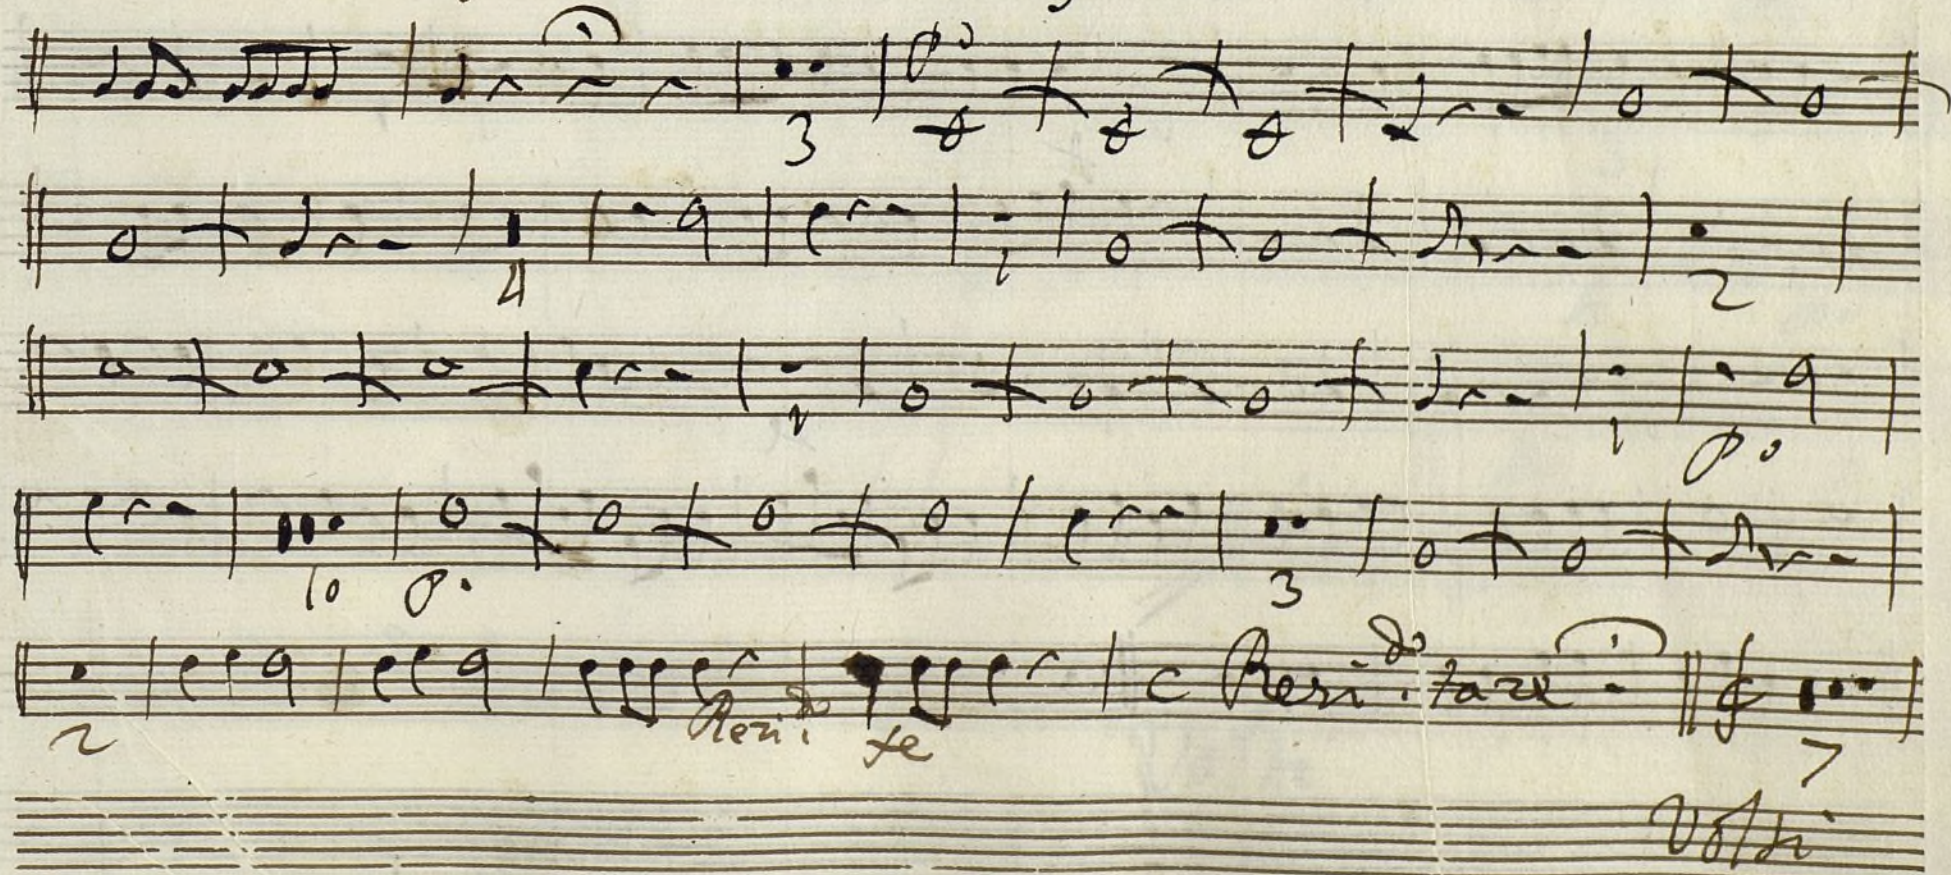 3 p.o
4 1 2
1 1 p.o
10 p. 3
2 Reri.do te C Reri.do taze 7
Volti